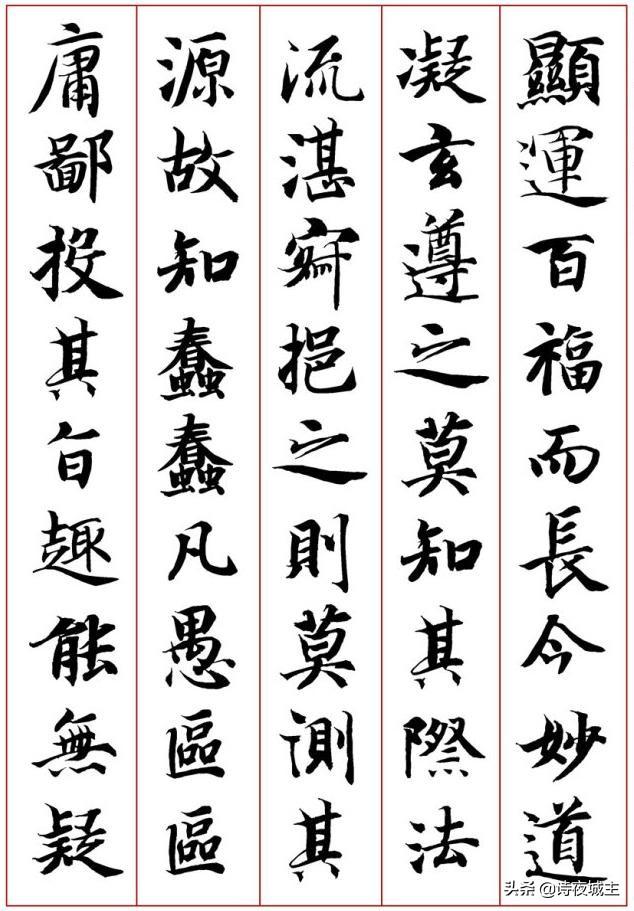 顯運百福而長今妙道
凝玄遵之莫知其際法
流湛寂挹之則莫測其
源故知蠢蠢凡愚區區
庸鄙投其旨趣能無疑
头条 @诗夜城主